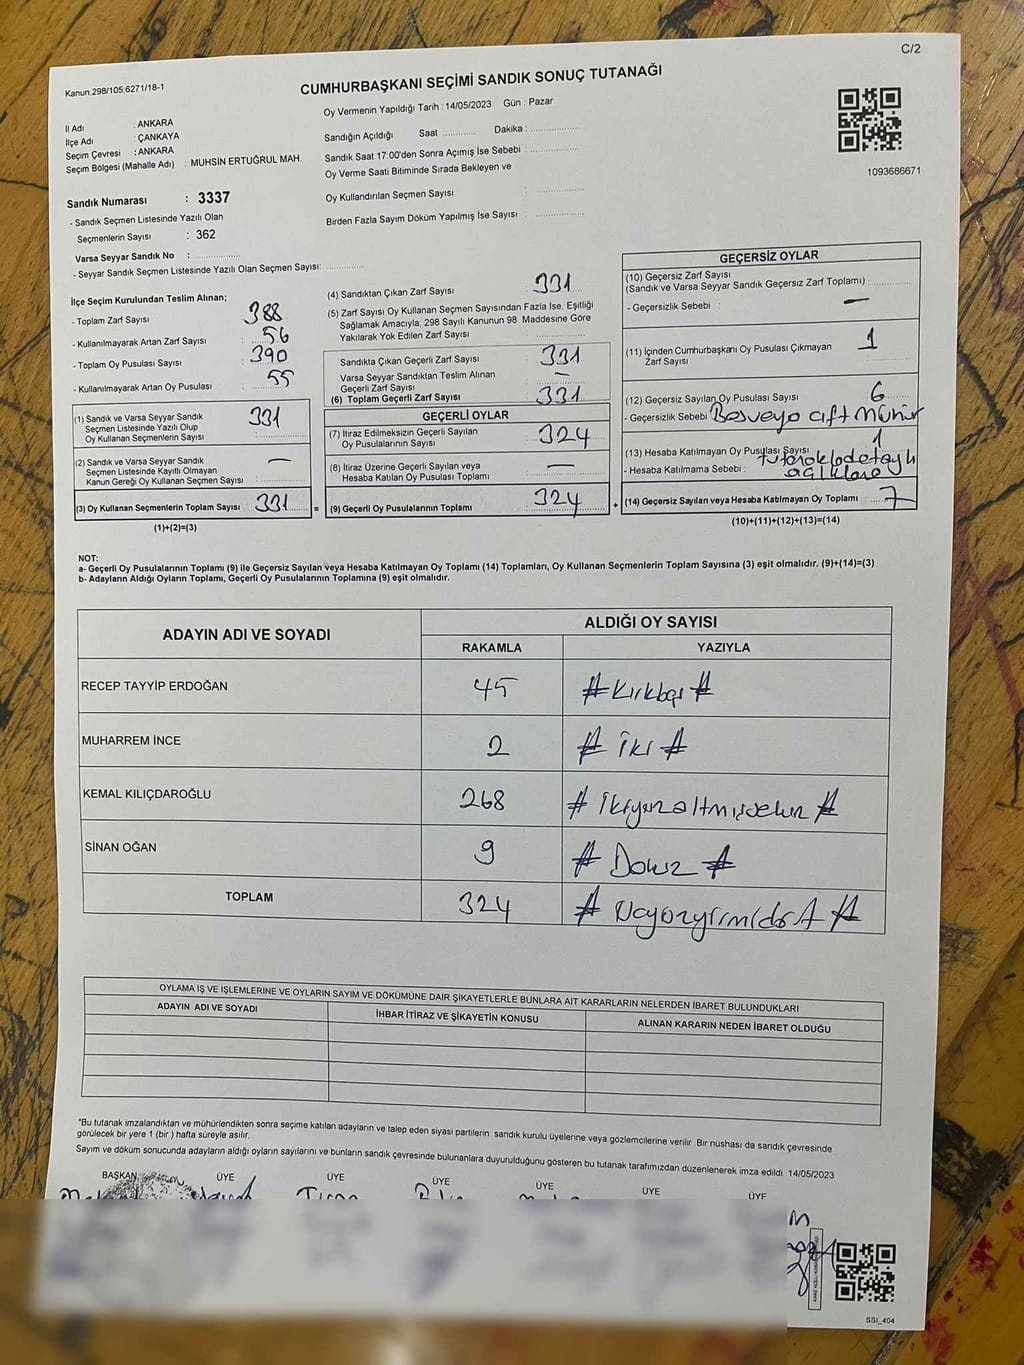 C/2
Kanun:298/105;6271/18-1
CUMHURBAŞKANI SEÇİMİ SANDIK SONUÇ TUTANAĞI
Oy Vermenin Yapıldığı Tarih : 14/05/2023 Gün : Pazar
İl Adı : ANKARA
İlçe Adı : ÇANKAYA
Seçim Çevresi : ANKARA
Seçim Bölgesi (Mahalle Adı) : MUHSİN ERTUĞRUL MAH.
Sandığın Açıldığı Saat ............ Dakika : ..................
Sandık Saat 17:00'den Sonra Açımış İse Sebebi : ..................
Oy Verme Saati Bitiminde Sırada Bekleyen ve
Oy Kullandırılan Seçmen Sayısı : ..................
Birden Fazla Sayım Döküm Yapılmış İse Sayısı : ..................
1093686671
Sandık Numarası : 3337
- Sandık Seçmen Listesinde Yazılı Olan
Seçmenlerin Sayısı : 362
Varsa Seyyar Sandık No : ..................
- Seyyar Sandık Seçmen Listesinde Yazılı Olan Seçmen Sayısı: ..............
İlçe Seçim Kurulundan Teslim Alınan;
- Toplam Zarf Sayısı : 388
- Kullanılmayarak Artan Zarf Sayısı : 56
- Toplam Oy Pusulası Sayısı : 390
- Kullanılmayarak Artan Oy Pusulası : 55
(1) Sandık ve Varsa Seyyar Sandık
Seçmen Listesinde Yazılı Olup
Oy Kullanan Seçmenlerin Sayısı : 331
(2) Sandık ve Varsa Seyyar Sandık
Seçmen Listesinde Kayıtlı Olmayan
Kanun Gereği Oy Kullanan Seçmen Sayısı : —
(3) Oy Kullanan Seçmenlerin Toplam Sayısı : 331 =
(1)+(2)=(3)
(4) Sandıktan Çıkan Zarf Sayısı : 331
(5) Zarf Sayısı Oy Kullanan Seçmen Sayısından Fazla İse, Eşitliği
Sağlamak Amacıyla; 298 Sayılı Kanunun 98. Maddesine Göre
Yakılarak Yok Edilen Zarf Sayısı
Sandıkta Çıkan Geçerli Zarf Sayısı : 331
Varsa Seyyar Sandıktan Teslim Alınan
Geçerli Zarf Sayısı : —
(6) Toplam Geçerli Zarf Sayısı : 331
GEÇERLİ OYLAR
(7) İtiraz Edilmeksizin Geçerli Sayılan
Oy Pusulalarının Sayısı : 324
(8) İtiraz Üzerine Geçerli Sayılan veya
Hesaba Katılan Oy Pusulası Toplamı : —
(9) Geçerli Oy Pusulalarının Toplamı : 324 +
GEÇERSİZ OYLAR
(10) Geçersiz Zarf Sayısı
(Sandık ve Varsa Seyyar Sandık Geçersiz Zarf Toplamı) : ............
- Geçersizlik Sebebi : —
(11) İçinden Cumhurbaşkanı Oy Pusulası Çıkmayan
Zarf Sayısı : 1
(12) Geçersiz Sayılan Oy Pusulası Sayısı : 6
- Geçersizlik Sebebi : Boş veya çift mühür
(13) Hesaba Katılmayan Oy Pusulası Sayısı : 1
- Hesaba Katılmama Sebebi :
(14) Geçersiz Sayılan veya Hesaba Katılmayan Oy Toplamı : 7
(10)+(11)+(12)+(13)=(14)
NOT:
a- Geçerli Oy Pusulalarının Toplamı (9) ile Geçersiz Sayılan veya Hesaba Katılmayan Oy Toplamı (14) Toplamları, Oy Kullanan Seçmenlerin Toplam Sayısına (3) eşit olmalıdır. (9)+(14)=(3)
b- Adayların Aldığı Oyların Toplamı, Geçerli Oy Pusulalarının Toplamına (9) eşit olmalıdır.
ADAYIN ADI VE SOYADI ALDIĞI OY SAYISI
RAKAMLA YAZIYLA
RECEP TAYYİP ERDOĞAN 45 # Kırkbeş #
MUHARREM İNCE 2 # İki #
KEMAL KILIÇDAROĞLU 268 # İkiyüzaltmışsekiz #
SİNAN OĞAN 9 # Dokuz #
TOPLAM 324 # Üçyüzyirmidört #
OYLAMA İŞ VE İŞLEMLERİNE VE OYLARIN SAYIM VE DÖKÜMÜNE DAİR ŞİKAYETLERLE BUNLARA AİT KARARLARIN NELERDEN İBARET BULUNDUKLARI
ADAYIN ADI VE SOYADI İHBAR İTİRAZ VE ŞİKAYETİN KONUSU ALINAN KARARIN NEDEN İBARET OLDUĞU
*Bu tutanak imzalandıktan ve mühürlendikten sonra seçime katılan adayların ve talep eden siyasi partilerin sandık kurulu üyelerine veya gözlemcilerine verilir. Bir nüshası da sandık çevresinde
görülecek bir yere 1 (bir ) hafta süreyle asılır.
Sayım ve döküm sonucunda adayların aldığı oyların sayılarını ve bunların sandık çevresinde bulunanlara duyurulduğunu gösteren bu tutanak tarafımızdan düzenlenerek imza edildi. 14/05/2023
BAŞKAN ÜYE ÜYE ÜYE ÜYE ÜYE ÜYE
SSI_404